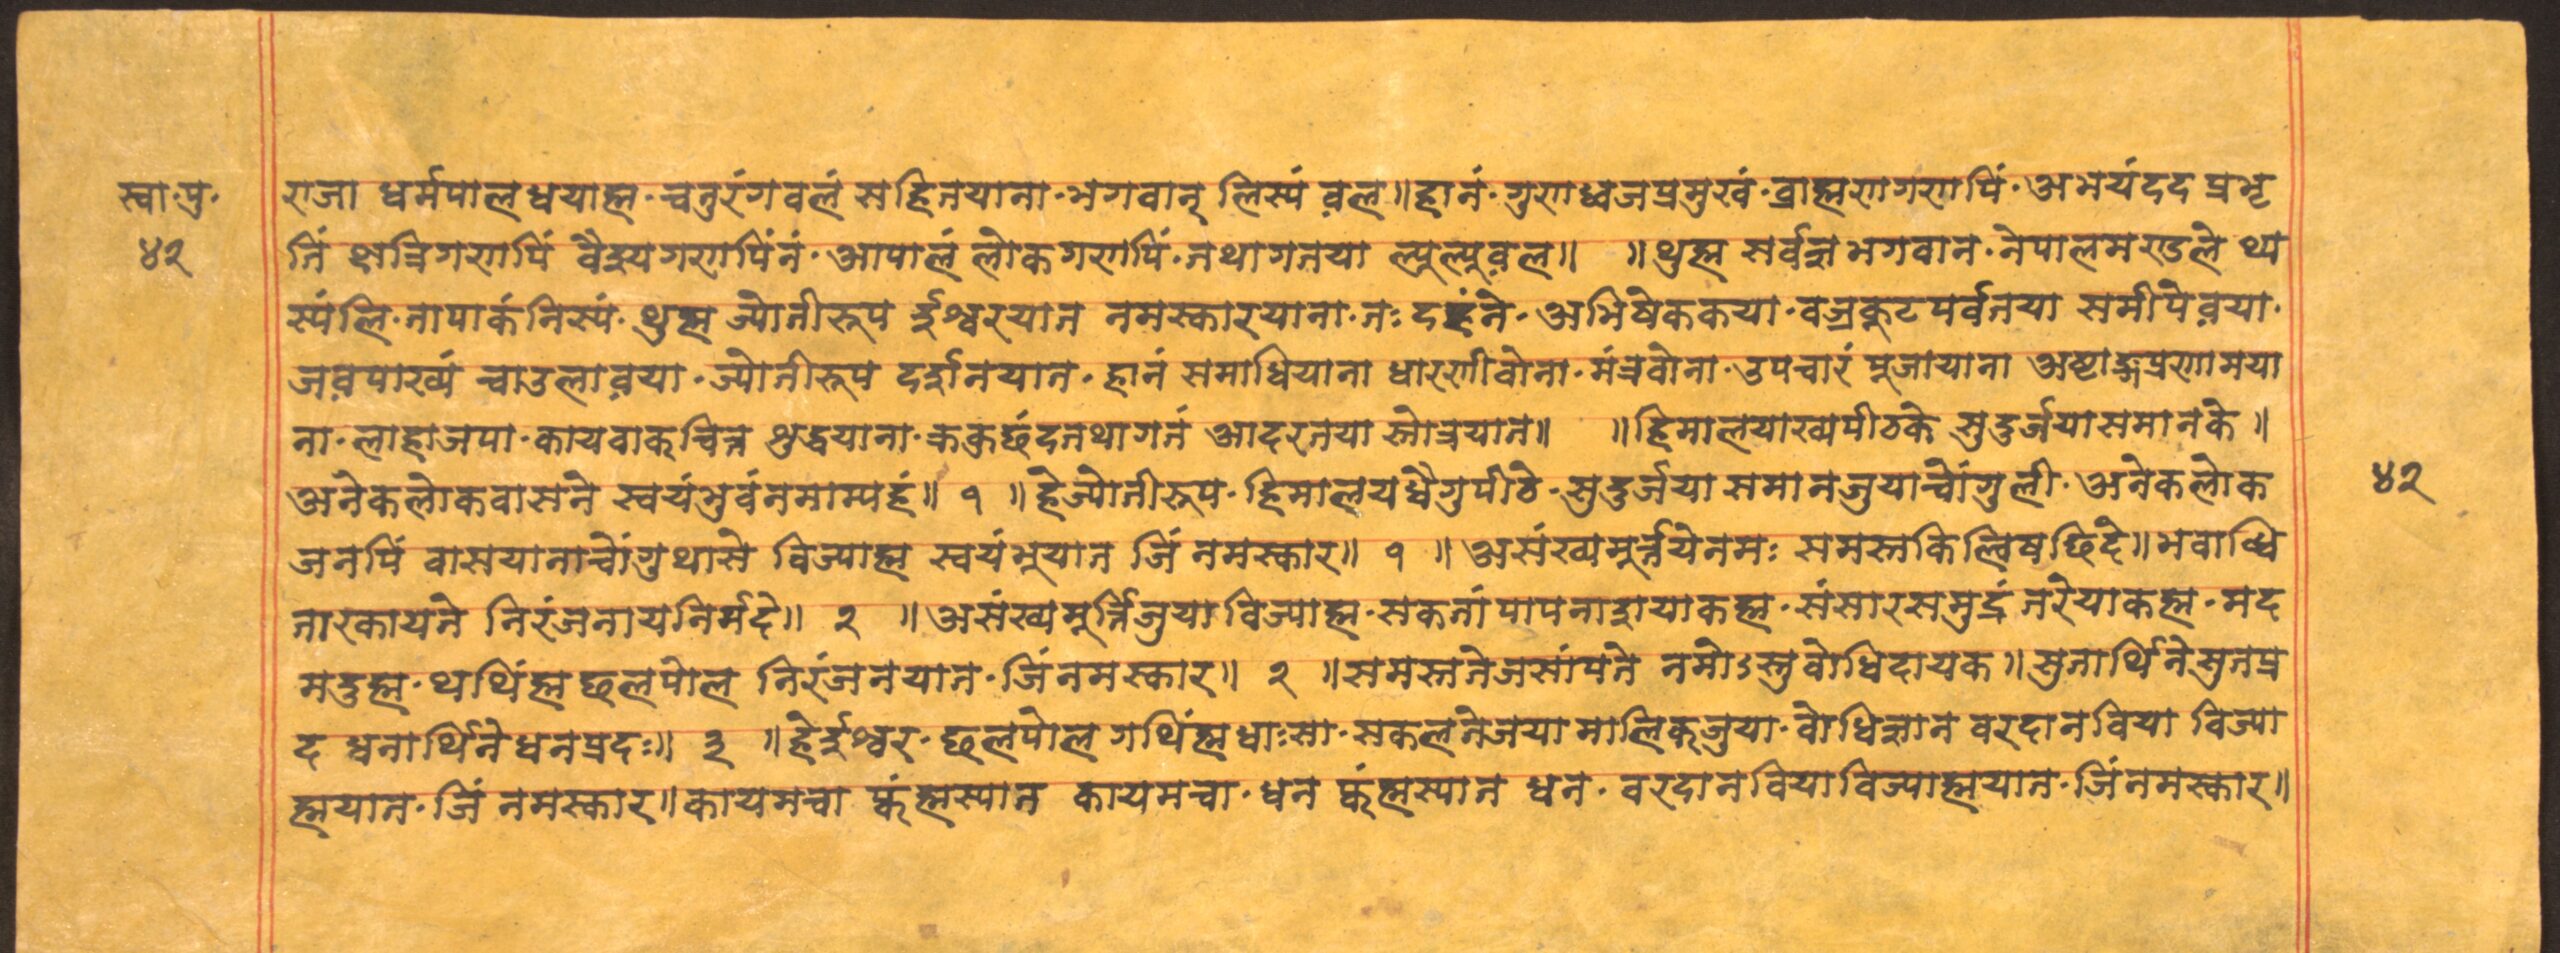 स्वा·पु·
४२
राजा धर्मपालधयाह्म·चतुरंगवलं सहितयाना·भगवान् लिस्यं व़ल॥ हानं·गुणध्वजप्रमुखं·ब्राह्मणगणपिं·अभयंदद प्रभृ
तिं क्षत्रिगणपिं वैश्यगणपिंनं·आपालं लोकगणपिं·तथागतया ल्यूल्यूव़ल॥ ॥थुह्म सर्वज्ञभगवान·नेपालमण्डले थ्य
स्यंलि·तापाकंनिस्यं·थुह्म ज्योतीरूप र्इश्वरयात नमस्कारयाना·तः दहंने·अभिषेककया·वज्रकूटपर्वतया समीपेव़या·
जव़पाख्यं चाउलाव़या·ज्योतीरूप दर्शनयात·हानं समाधियाना धारणीवोना·मंत्रवोना·उपचारं पूजायाना अष्टाङ्गप्रणामया
ना·लाहाजपा·कायवाक्चित्त शुद्धयाना·क्रकुछंदतथागतं आदरतया स्तोत्रयात॥ ॥हिमालयाख्यपीठके सुदुर्जयासमानके॥
अनेकलोकवासने स्वयंभुवंनमाम्यहं॥ १ ॥हेज्योतीरूप·हिमालयधैगुपीठे·सुदुर्जया समानजुयाच्वोंगुली·अनेकलोक
जनपिं वासयानाच्वोंगुथासे विज्याह्म स्वयंभूयात जिं नमस्कार॥ १ ॥असंख्यमूर्त्तयेनमः समस्तकिल्विषछिदे॥भवाब्धि
तारकायते निरंजनायनिर्मदे॥ २ ॥असंख्यमूर्त्तिजुया विज्याह्म·सकतां पापनाशयाकह्म·संसारसमुद्रं तरेयाकह्म·मद
मदुह्म·थथिंह्म छलपोल निरंजनयात·जिंनमस्कार॥ २ ॥समस्ततेजसांपते नमोऽस्तुवोधिदायक॥सुतार्थिनेसुतप्र
द धनार्थिनेधनप्रदः॥ ३ ॥हेर्इश्वर·छलपोल गथिंह्मधाःसा·सकलतेजया मालिक्जुया·वोधिज्ञान वरदानविया विज्या
ह्मयात·जिं नमस्कार॥कायमचा फ्वंह्मस्यात कायमचा·धन फ्वंह्मस्यात धन·वरदानवियाविज्याह्मयात·जिंनमस्कार॥
४२